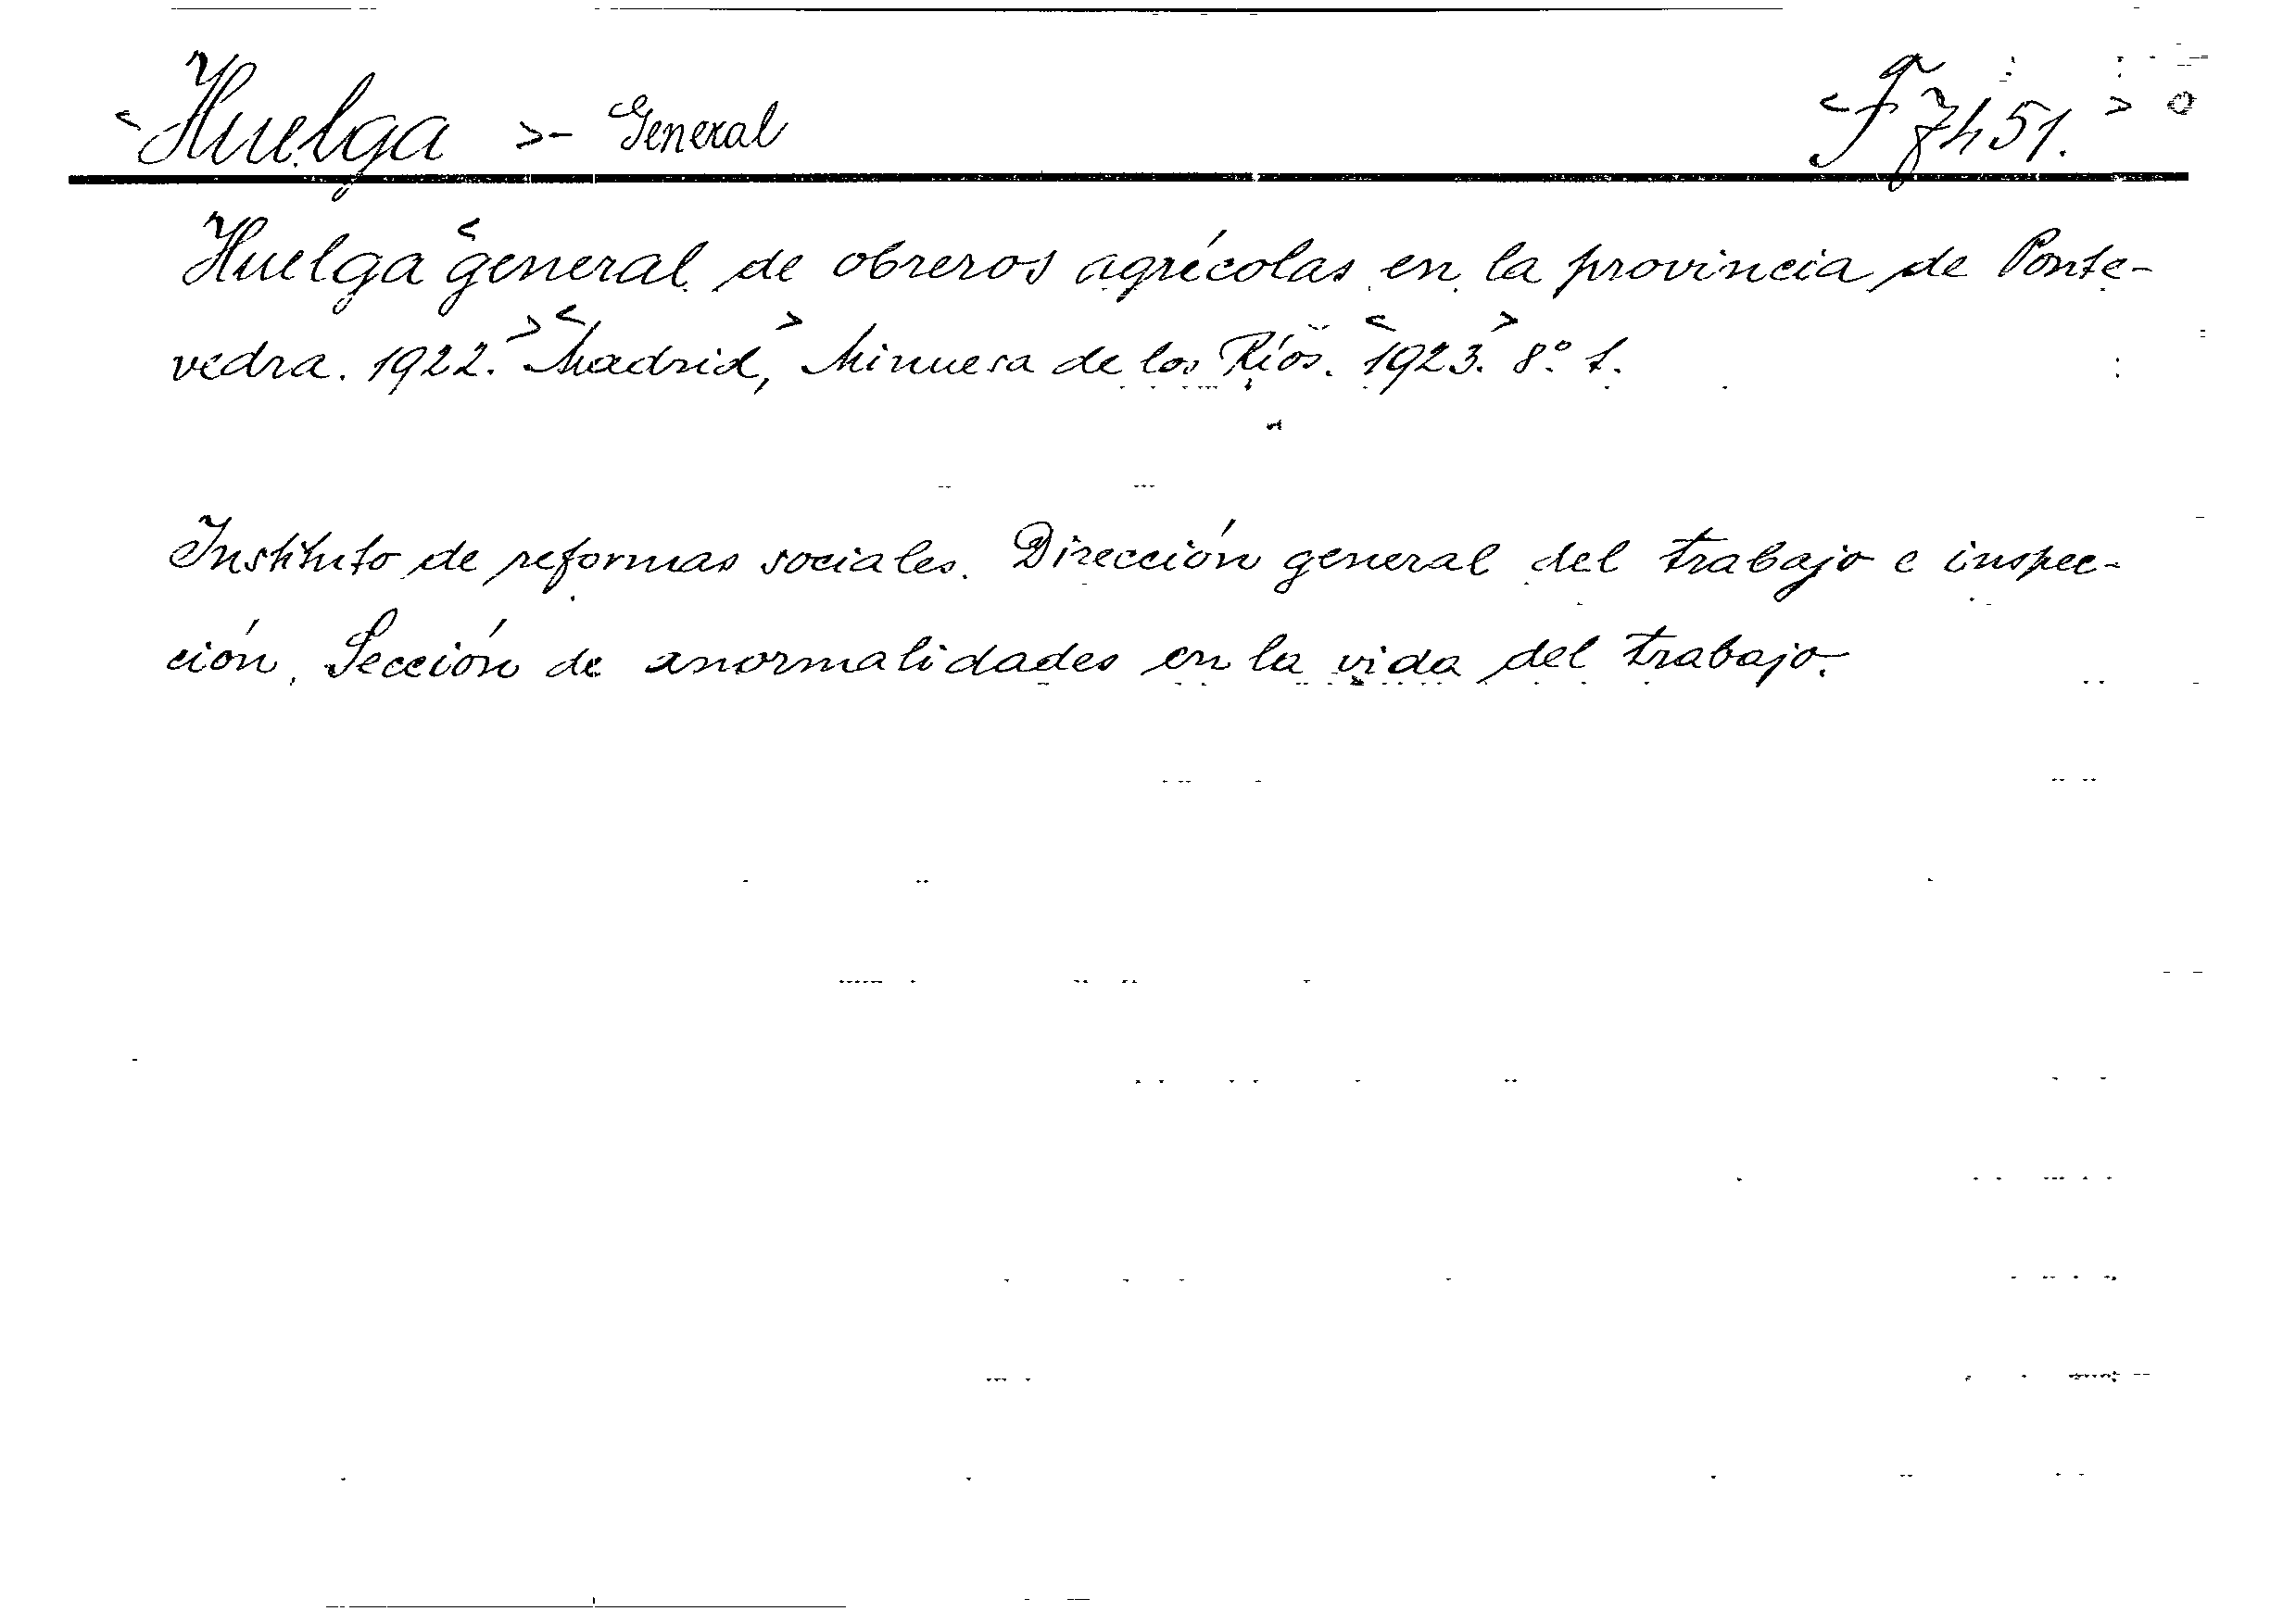 <Huelga >- General <F 7451. >
Huelga <general de obreros agrícolas en la provincia de Ponte-
vedra. 1922.> <Madrid,> Minuesa de los Ríos. <1923.> 8º. 1.
Instituto de reformas sociales. Dirección general del trabajo e inspec-
ción, Sección de anormalidades en la vida del trabajo.